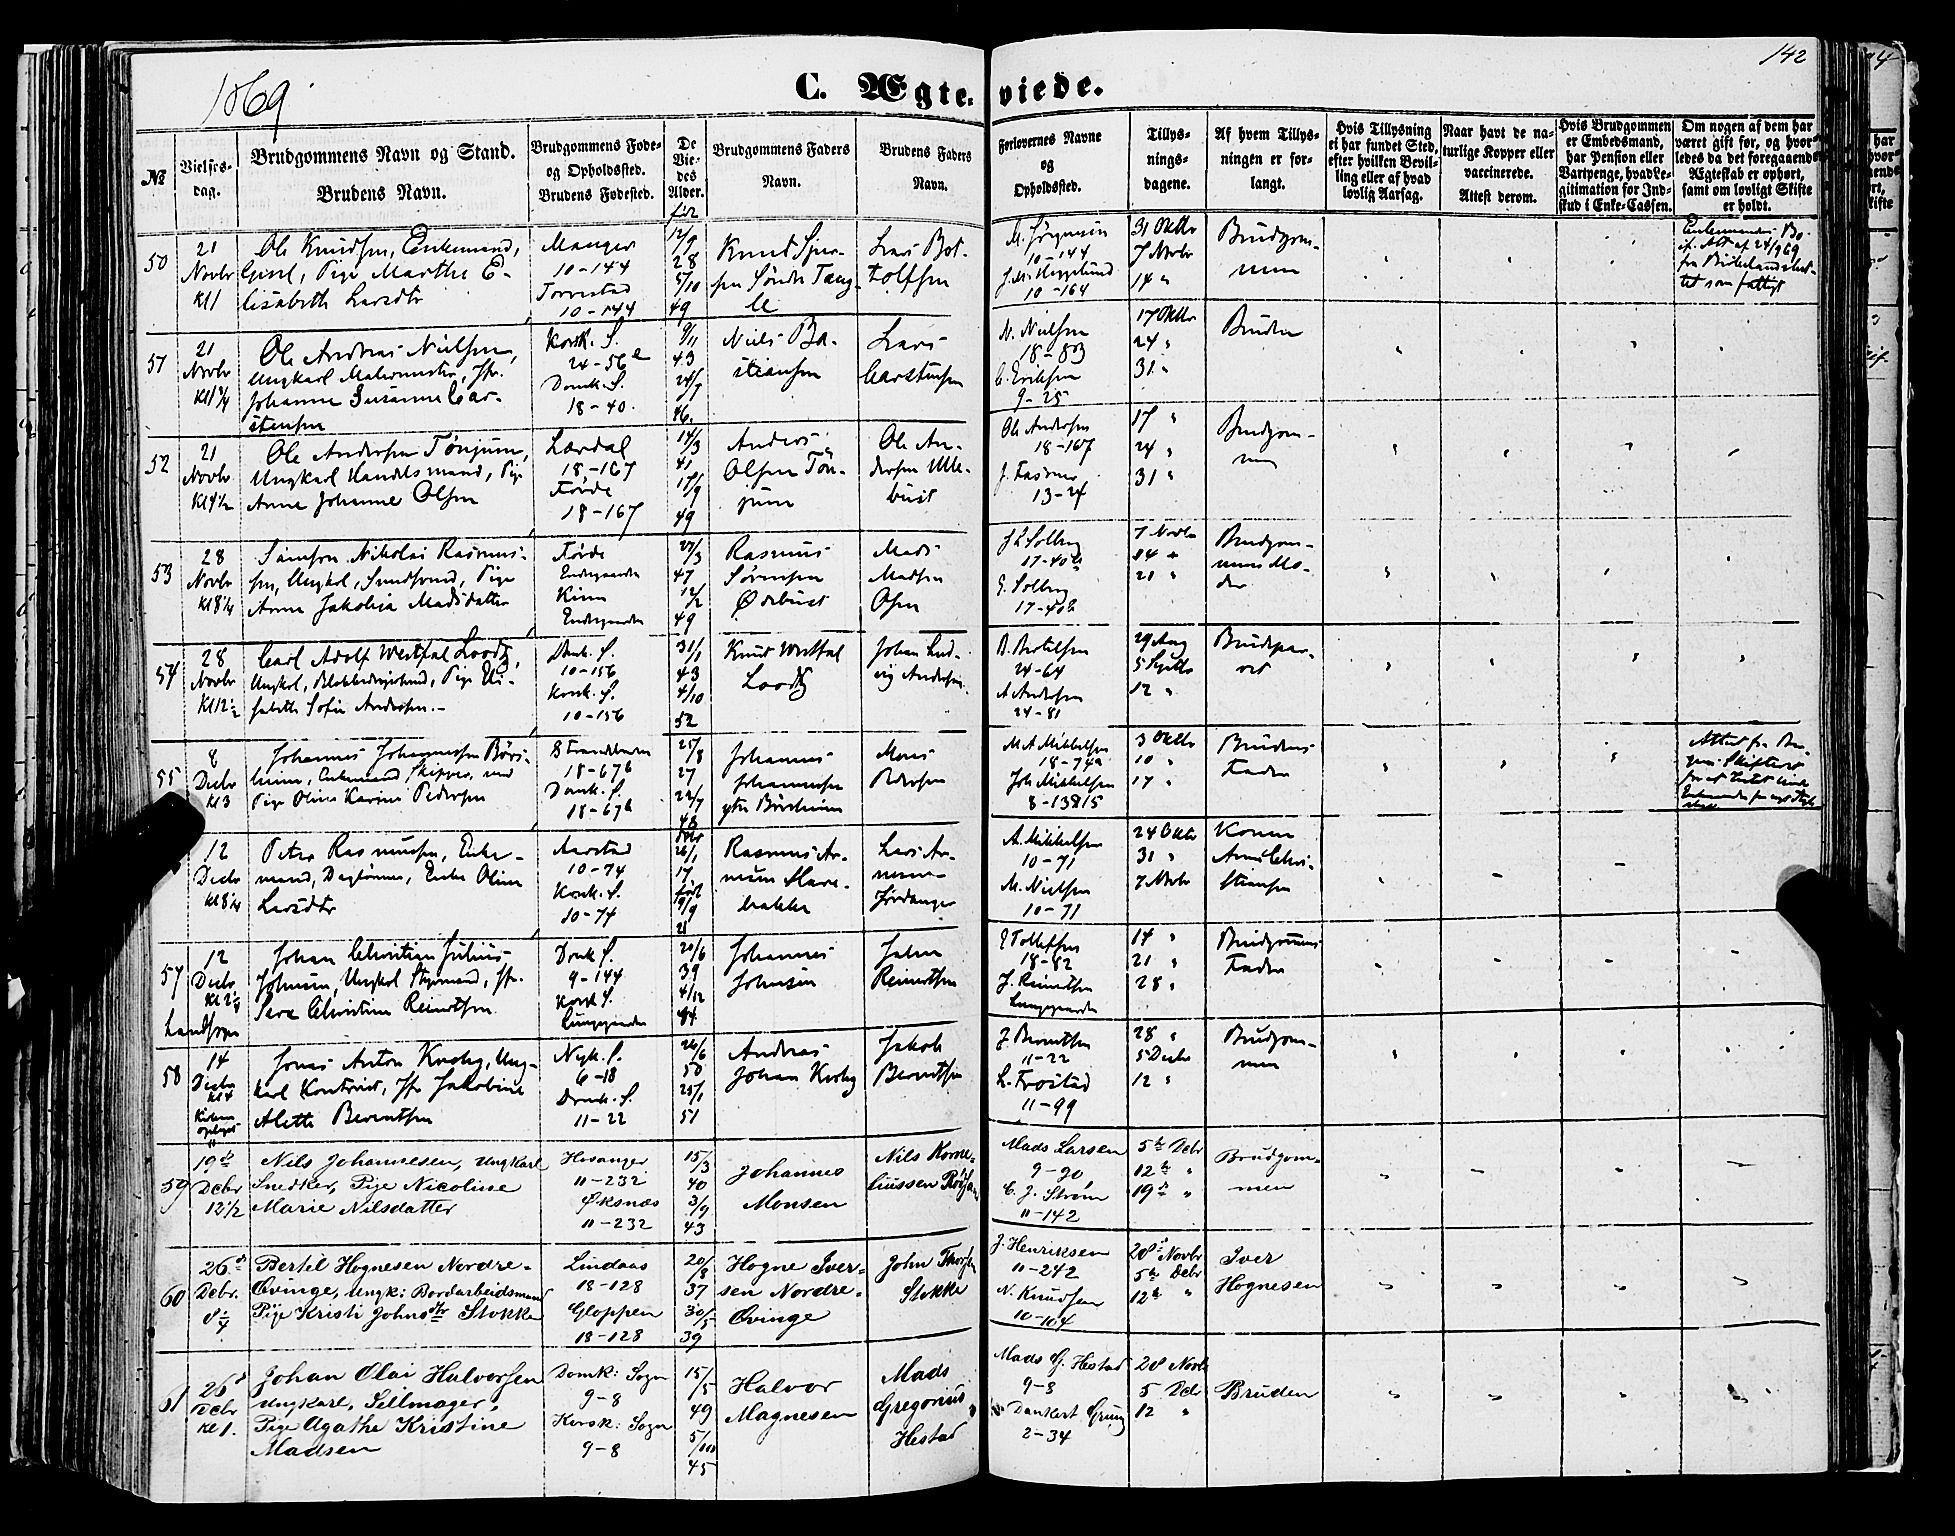 1869
C. Ægteviede.
142
№
Vielses-
dag.
Brudgommens Navn og Stand.
Brudens Navn.
Brudgommens Føde-
og Opholdssted.
Brudens Fødested.
De
Vie-
des
Alder.
før
Brudgommens Faders
Navn.
Brudens Faders
Navn.
Forlovernes Navne
og
Opholdssted.
Tillys-
nings-
dagene.
Af hvem Tillys-
ningen er for-
langt.
Hvis Tillysning
ei har fundet Sted,
efter hvilken Bevil-
ling eller af hvad
lovlig Aarsag.
Naar havt de na-
turlige Kopper eller
vaccinerede.
Attest derom.
Hvis Brudgommen
er Embedsmand,
har Pension eller
Vartpenge, hvad Le-
gitimation for Ind-
skud i Enke-Cassen.
Om nogen af dem har
været gift før, og hvor-
ledes da det foregaaende
Ægteskab er ophørt,
samt om lovligt Skifte
er holdt.
50
21
Novbr
Kl 1
Ole Knudsen, Enkemand,
Pige Marthe E-
lisabeth Larsdtr
Manger
10-144
Torvestad
10-144
12/9
28
5/10
49
Lars Bot-
tolfsen
M. Jørgensen
10-144
10-164
31 Oktbr
7 Novbr
14 "
Brudgom-
men
51
21
Novbr
Ole Andreas Nielsen,
Ungkarl Malermester, Jfr.
Johanne Susanne Car-
stensen
Korsk. S.
24-56
Domk. S.
18-40.
9/11
43
24/7
46.
Niels Ba-
stiansen
Lars
Carstensen
N. Nielsen
18-83
C. Eriksen
9-25
17 Oktbr
24 "
31 "
Bruden
52
21
Novbr
Ole Andersen Tönjum,
Ungkarl Handelsmand, Pige
Anne Johanne Olsen
Lærdal
18-167
Förde
18-167
14/3
41
17/9
49
Anders
Olsen Tön-
jum
Ole An-
dersen Ulle-
bust
Ole Andersen
18-167
J. Fasmer
13-24
17 "
24 "
31 "
Brudgom-
men
53
28
Novbr
Kl 8¼
Samson Nikolai Rasmus-
sen, Ungkarl, Pige
Anne Jakobia Madsdatter
Förde
Kinn
27/3
47
12/2
49
Rasmus
Sörensen
Ödebust
Mads
Madsen
Osen
J L Solberg
17-40
E. Solberg
17-40
7 Novbr
14 "
21 "
Brudgom-
mens Mo-
der
54
28
Novbr
Carl Adolf Westfal Loodtz,
Pige Eli-
sabeth Sofie Andersen.-
Domk. S.
10-156
Korsk. S.
10-156
31/1
43
4/10
52
Knud Westfal
Loodtz
Johan Lud-
vig Andersen
B. Bertelsen
24-64
A Andersen
24-81
29 Aug
5 Septbr
12 "
Brudpar-
ret
55
8
Decbr
Kl 3
Johannes Johannessen Börs-
heim, Enkemand, Skipper, med
Pige Oline Karine Pedersen
Strandebarm
18-676
Domk. S.
18-676
25/8
27
22/7
48
Johannes
Johannessen
Börsheim
Mons
Pedersen
M A Mikkelsen
18-74
Joh Mikkelsen
8-13815
3 Oktbr
10 "
17 "
Brudens
Fader
12
Decbr
Kl 8¼
Peter Rasmussen, Enke-
mand, Daglönner, Enke Oline
Larsdtr
Aarstad
10-74
Korsk. S.
10-74
26/1
17
før
9/9
21
Rasmus
Lars
A. Mikkelsen
10-71
M. Nielsen
10-71
24 Oktbr
31 "
7 Novbr
Konen
Anne Chri-
stensen
57
12
Decbr
Landsogn
Johan Christian Julius
Johnsen, Ungkarl Styrmand, Jfr.
Sara Christine Reimertsen
Domk. S.
9-144
Korsk. S.
Lungegaarden
20/6
39
4/12
44
Johannes
Johnsen
Johan
Reimertsen
18-82
J. Reimertsen
Lungegaarden
14 "
21 "
28 "
Brudgommens
Fader
58
14
Decbr
Kl 4
Jonas Anton Krohg, Ung-
karl Kontorist, Jfr Jakobine
Alette Berentsen
Nyk. S.
6-18
Domk. S.
11-22
26/6
50
25/1
51
Andreas
Johan Krohg
Jakob
Berentsen
J. Berentsen
11-22
L. Frostad
11-99
28 "
5 Decbr
12 "
Brudgom-
men
59
19de
Debr
12½
Nils Johannesen, Ungkarl
Snedker, Pige Nicoline
Marie Nilsdatter
Hosanger
11-232
Øksnæs
11-232
15/3
40
3/9
43
Johannes
Monsen
Nils Korne-
liussen
Mads Larsen
9-90
C. J. Strøm
11-142
5te Debr
12te "
19de "
Brudgom-
men
60
26de
Debr.
Bertel Hognesen Nordre-
Øvinge, Ungk: Bordarbeidsmand
Pige Kristi Johnsdtr Stokke
Lindaas
18-128
Gloppen
18-128
20/8
37
30/5
39
Hogne Iver-
sen Nordre-
Øvinge
John
Stokke
J. Henriksen
11-242
N. Knudsen
10-104
28de Novbr
5te Debr
12te "
Iver
Hognesen
61
26de
Debr
Kl 1.
Johan Olai Halvorsen
Ungkarl, Seilmager,
Pige Agathe Kristine
Madsen
Domk: Sogn
9-8
Korsk: Sogn
9-8
15/5
49
45
Halvor
Magnesen
Mads
Gregorius
Hestad
Mads G. Hestad
9-8
Dankert Grung
2-34
28 Novbr
5 Debr
12 "
Bruden